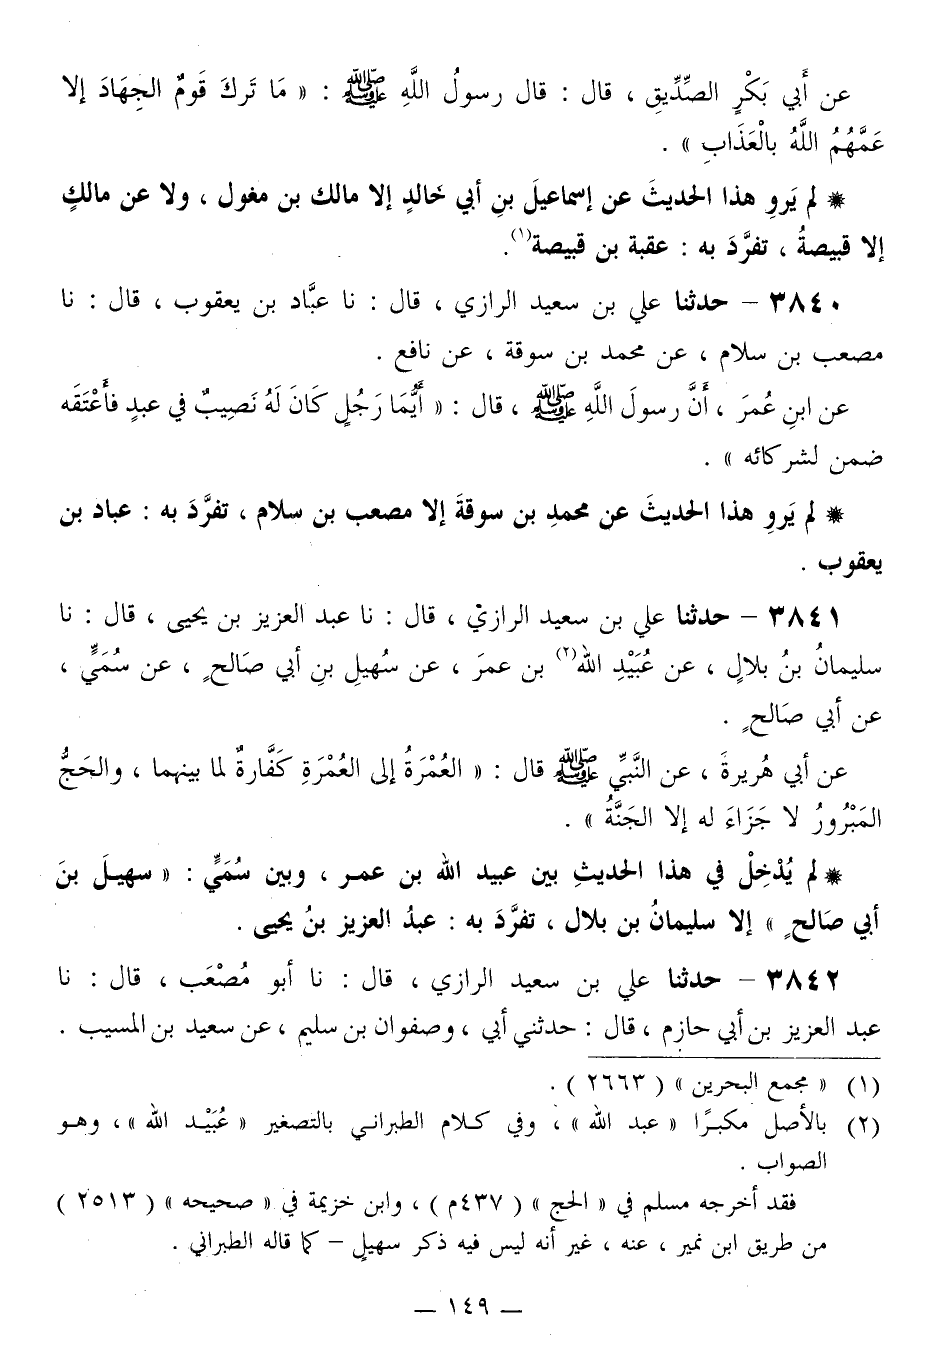 عن أَبي بَكْرٍ الصِّدِّيقِ ، قال : قال رسولُ اللَّهِ ﷺ : « مَا تَركَ قَومٌ الجِهَادَ إلا
عَمَّهُمُ اللَّهُ بالْعَذَابِ » .
* لم يَروِ هذا الحديثَ عن إسماعيلَ بنِ أبي خَالدٍ إلا مالك بن مغول ، ولا عن مالكٍ
إلا قبيصةُ ، تفرَّدَ به : عقبة بن قبيصة(١).
٣٨٤٠ – حدثنا علي بن سعيد الرازي ، قال : نا عبَّاد بن يعقوب ، قال : نا
مصعب بن سلام ، عن محمد بن سوقة ، عن نافع .
عن ابنِ عُمرَ ، أَنَّ رسولَ اللَّهِ ﷺ ، قال : « أَيُّمَا رَجُلٍ كَانَ لَهُ نَصِيبٌ في عبدٍ فأَعْتَقَه
ضمن لشركائه » .
* لم يَروِ هذا الحديثَ عن محمدِ بن سوقةَ إلا مصعب بن سلام ، تفرَّدَ به : عباد بن
يعقوب .
٣٨٤١ – حدثنا علي بن سعيد الرازيْ ، قال : نا عبد العزيز بن يحيى ، قال : نا
سليمانُ بنُ بلالٍ ، عن عُبَيْدِ الله(٢) بن عمرَ ، عن سُهيلِ بنِ أبي صَالحٍ ، عن سُمَيٍّ ،
عن أبي صَالحٍ .
عن أبي هُريرةَ ، عن النَّبيِّ ﷺ قال : « العُمْرَةُ إلى العُمْرَةِ كَفَّارةٌ لما بينهما ، والحَجُّ
المَبْرُورُ لا جَزَاءَ له إلا الجَنَّةُ » .
* لم يُدْخِلْ في هذا الحديثِ بين عبيد الله بن عمر ، وبين سُمَيٍّ : « سهيلَ بنَ
أبي صَالحٍ » إلا سليمانُ بن بلال ، تفرَّدَ به : عبدُ العزيز بنُ يحيى .
٣٨٤٢ – حدثنا علي بن سعيد الرازي ، قال : نا أبو مُصْعَب ، قال : نا
عبد العزيز بن أبي حازم ، قال : حدثني أبي ، وصفوان بن سليم ، عن سعيد بن المسيب .
(١) « مجمع البحرين » ( ٢٦٦٣ ) .
(٢) بالأصل مكبرًا « عبد الله » ، وفي كلام الطبراني بالتصغير « عُبَيْد الله » ، وهو
الصواب .
فقد أخرجه مسلم في « الحج » ( ٤٣٧م ) ، وابن خزيمة في « صحيحه » ( ٢٥١٣ )
من طريق ابن نمير ، عنه ، غير أنه ليس فيه ذكر سهيلٍ – كما قاله الطبراني .
— ١٤٩ —